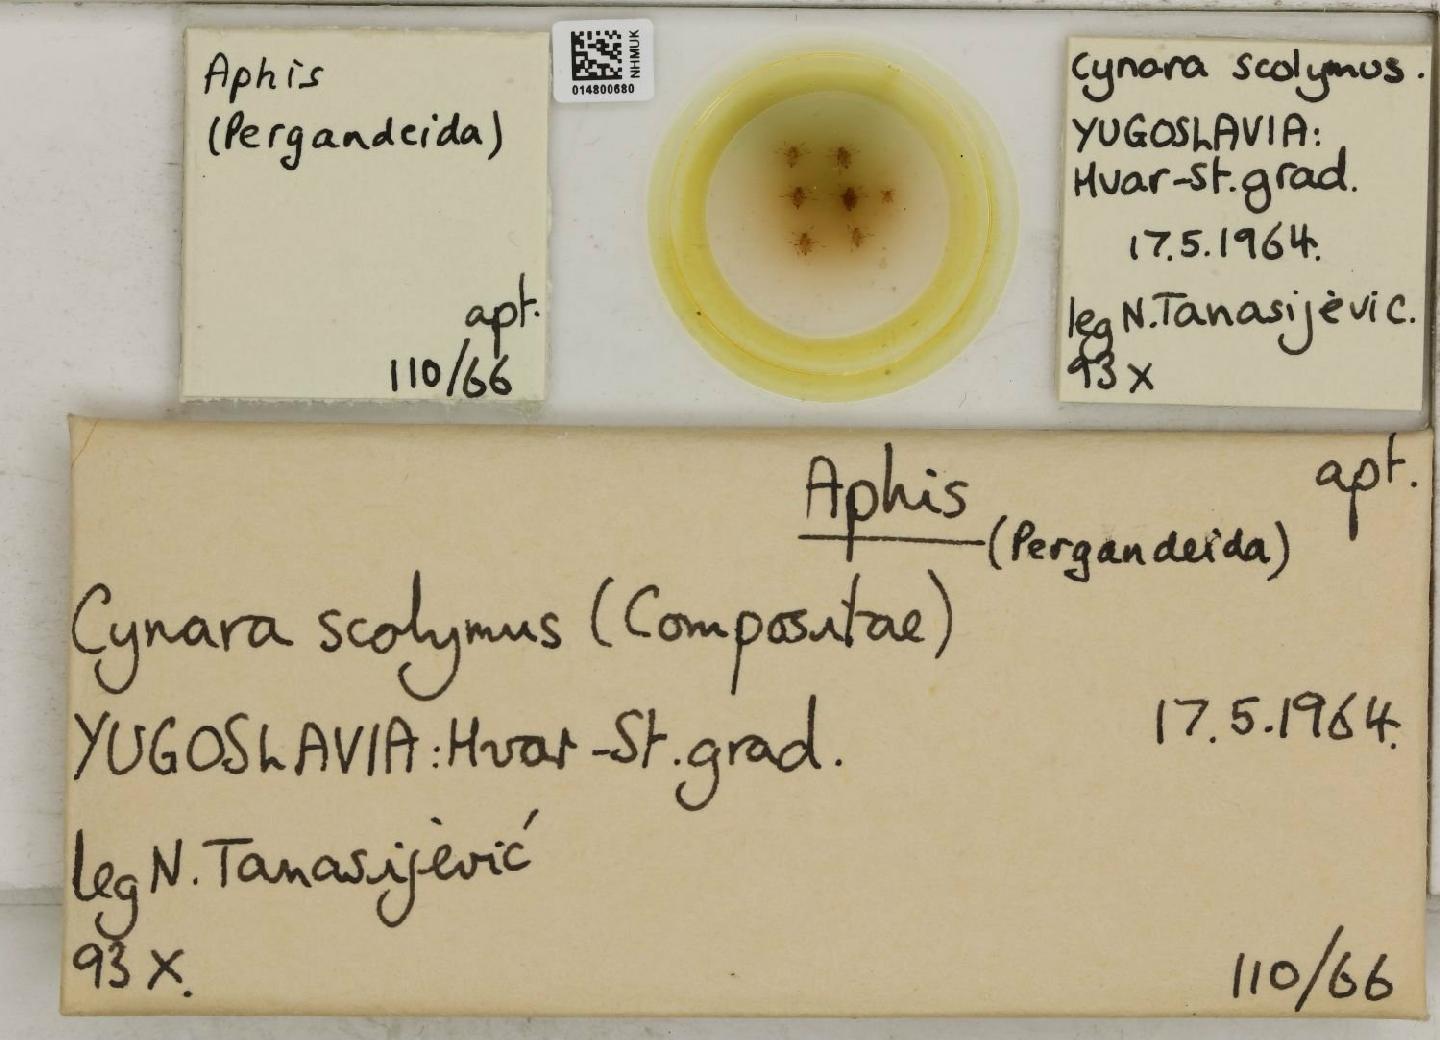 Aphis
(Pergandeida)
apt.
110/66
NHMUK
014800680
Cynara scolymus.
YUGOSLAVIA:
Hvar-St.grad.
17.5.1964.
leg N.Tanasijèvic.
93 x
Aphis
apt.
(Pergandeida)
Cynara scolymus (Compositae)
YUGOSLAVIA: Hvar-St.grad.
17.5.1964.
leg N. Tanasijèvić
93 X.
110/66